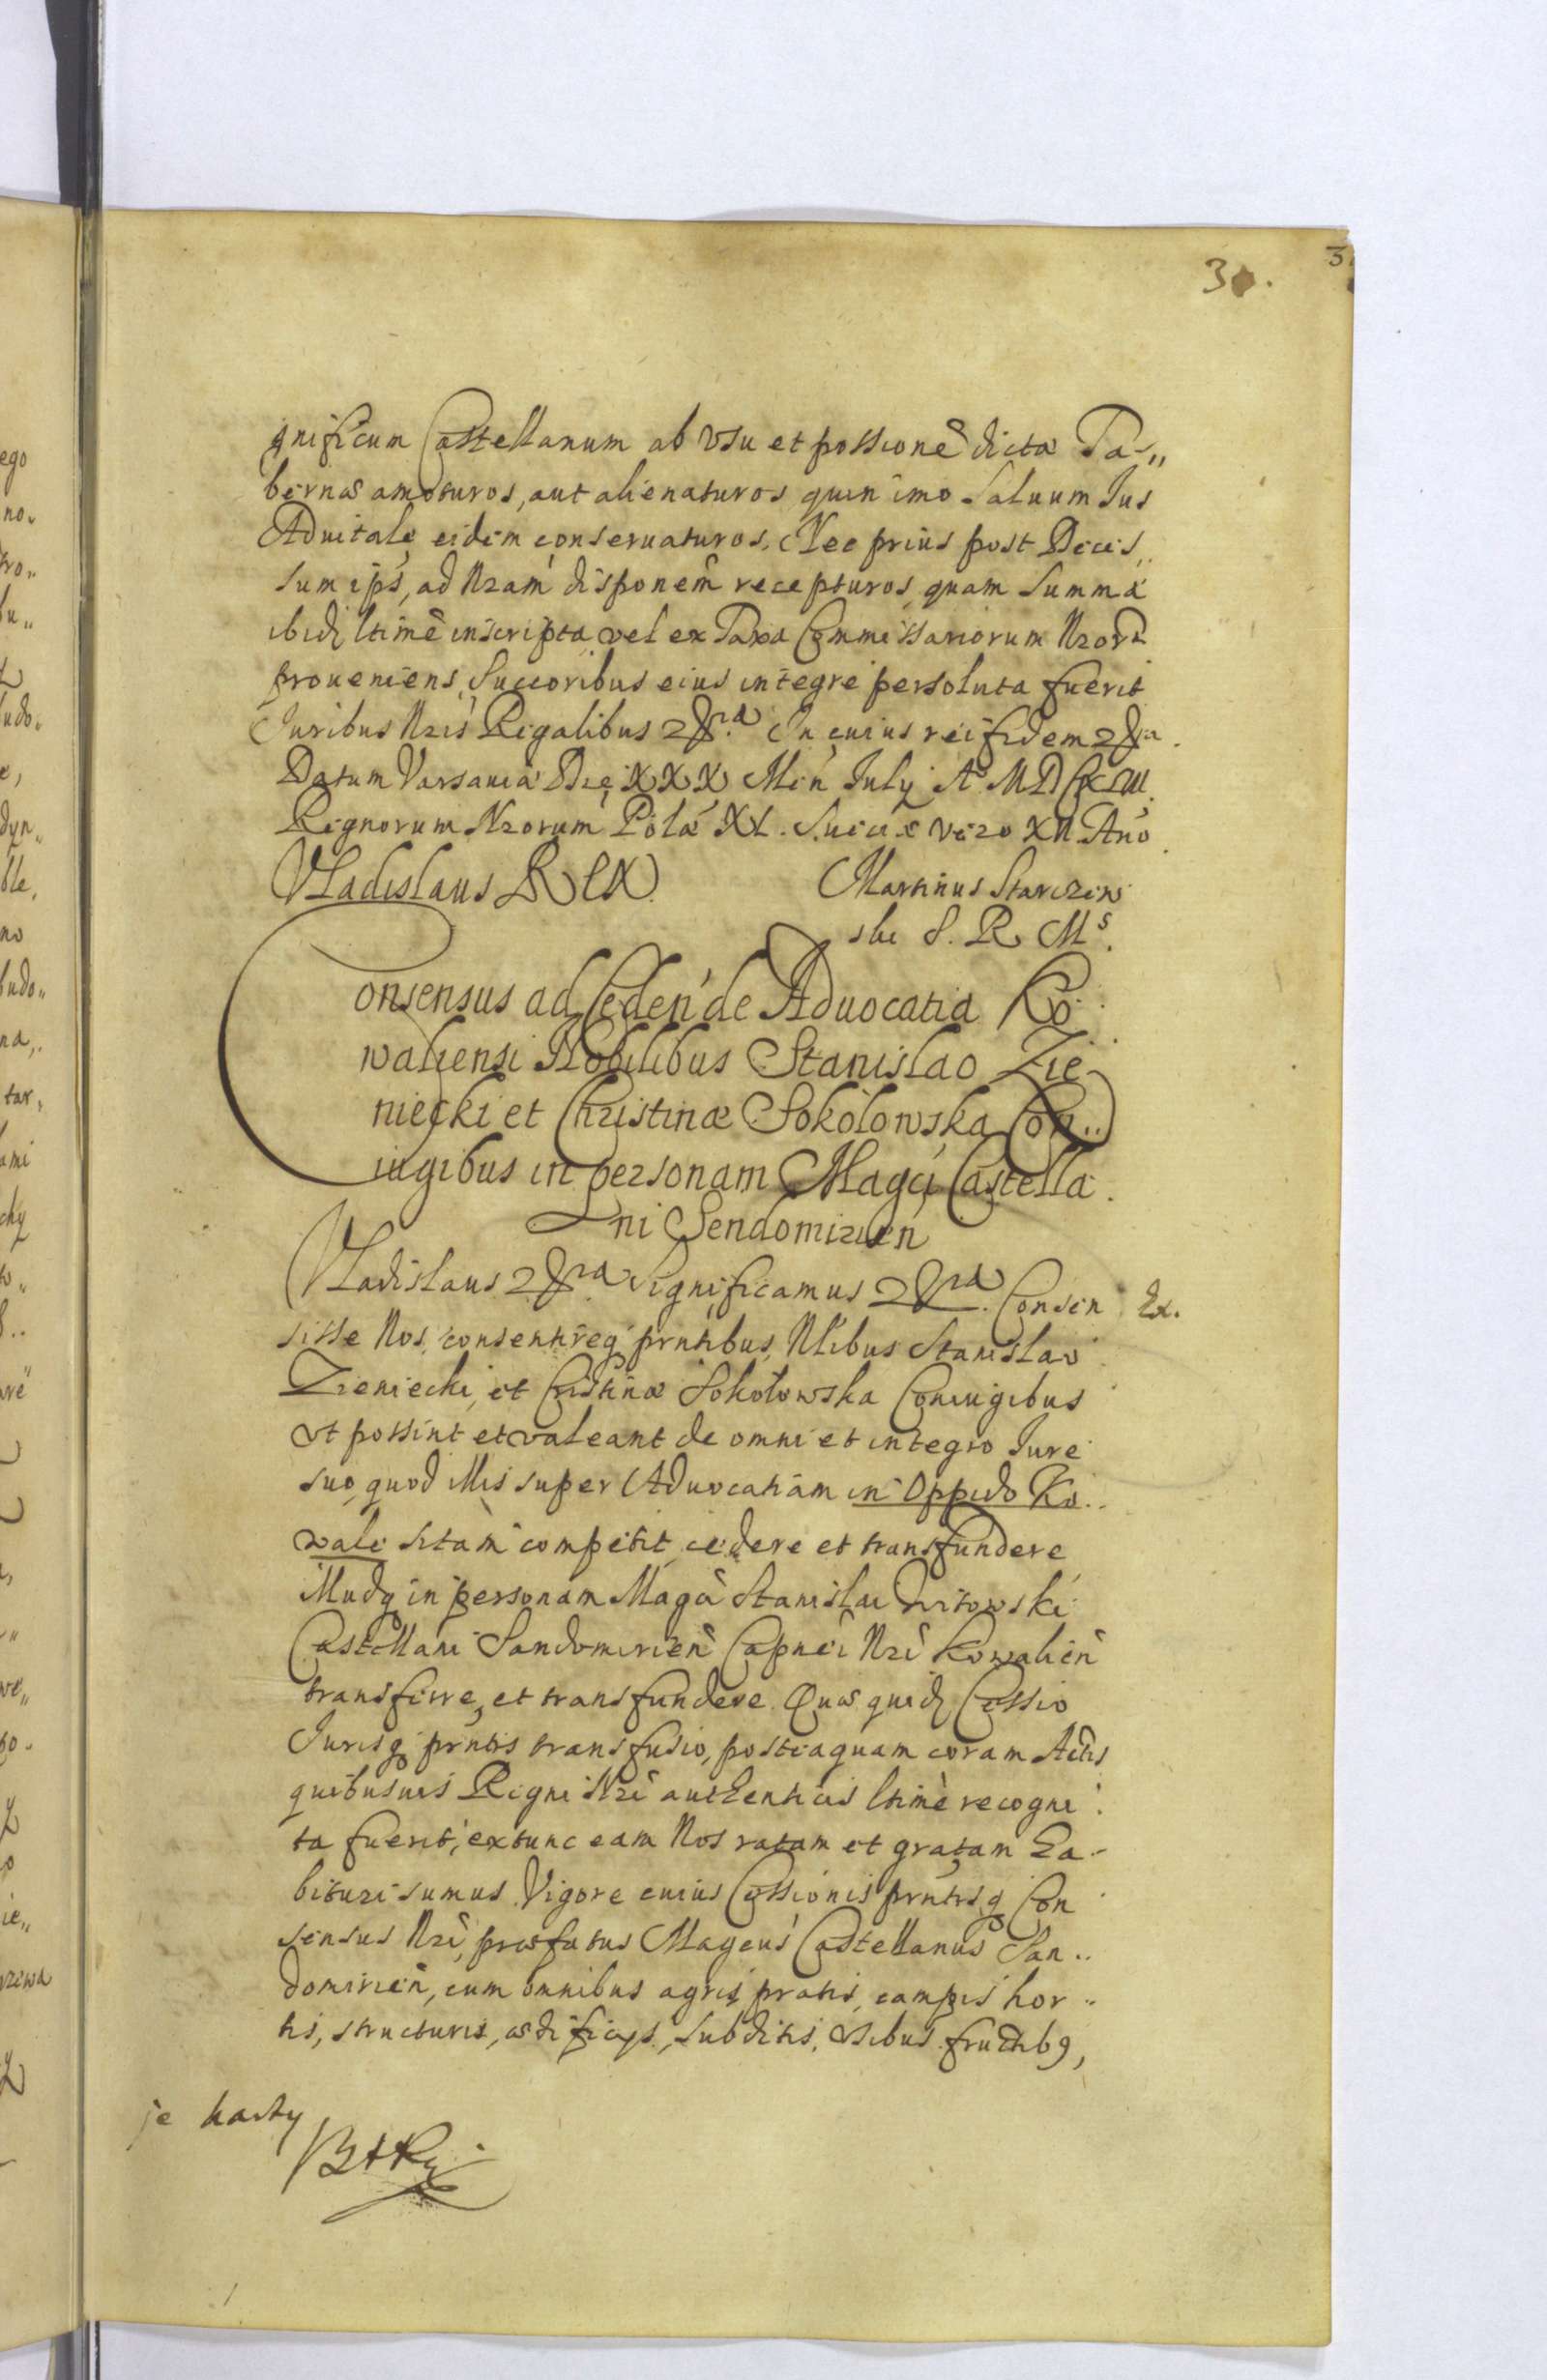 30.
gnificum Castellanum ab Vsu et possione dictæ Ta„
bernæ amoturos, aut alienaturos quin imo Saluum Jus
Aduitale eidem conseruaturos, Nec prius post Deces„
sum ips, ad Nram disponem recepturos, quam Summa
ibid ltime inscripta vel ex Taxa Commissariorum Nror
proueniens, Succoribus eius integre persoluta fuerit
Juribus Nris Regalibus &ra In cuius rei fidem &ra.
Datum Varsauiæ Die XXX Men July Ao
Regnorum Nrorum Polæ Sueciæ vero Ano
Vladislaus REX. Martinus Starczew
ski S. R. Ms.
Consensus ad Ceden de Aduocatia Ko
waliensi Nobilibus Stanislao Zie
niecki et Christinæ Sokolowska Con..
iugibus in personam Magci Castella.
ni Sendomirien
Vladislaus &ra Significamus &ra. Consen Ex.
sisse Nos, consentireq prntibus, Nlibus Stanislao
Zieniecki, et Cristinæ Sokołowska Coniugibus
Vt possint et valeant de omni et integro Jure
suo, quod illis super Aduocatiam in Oppido Ko..
wale sitam competit, cedere et transfundere
Illudq in personam Magci Stanislai Witowski
Castellani Sandomirien Capnei Nri Kowalien
transferre, et transfundere. Quæ quid Cessio
Jurisq prntis transfusio, posteaquam coram Actis
quibusuis Regni Nri authenticis ltime recogni
ta fuerit, extunc eam Nos ratam et gratam ha-
bituri sumus. Vigore cuius Cessionis prntisq Con
sensus Nri, præfatus Magcus Castellanus San..
domirien, cum omnibus agris pratis, campis hor..
tis, structuris, ædificijs, Subditis, Vsibus fructibq,
je karty